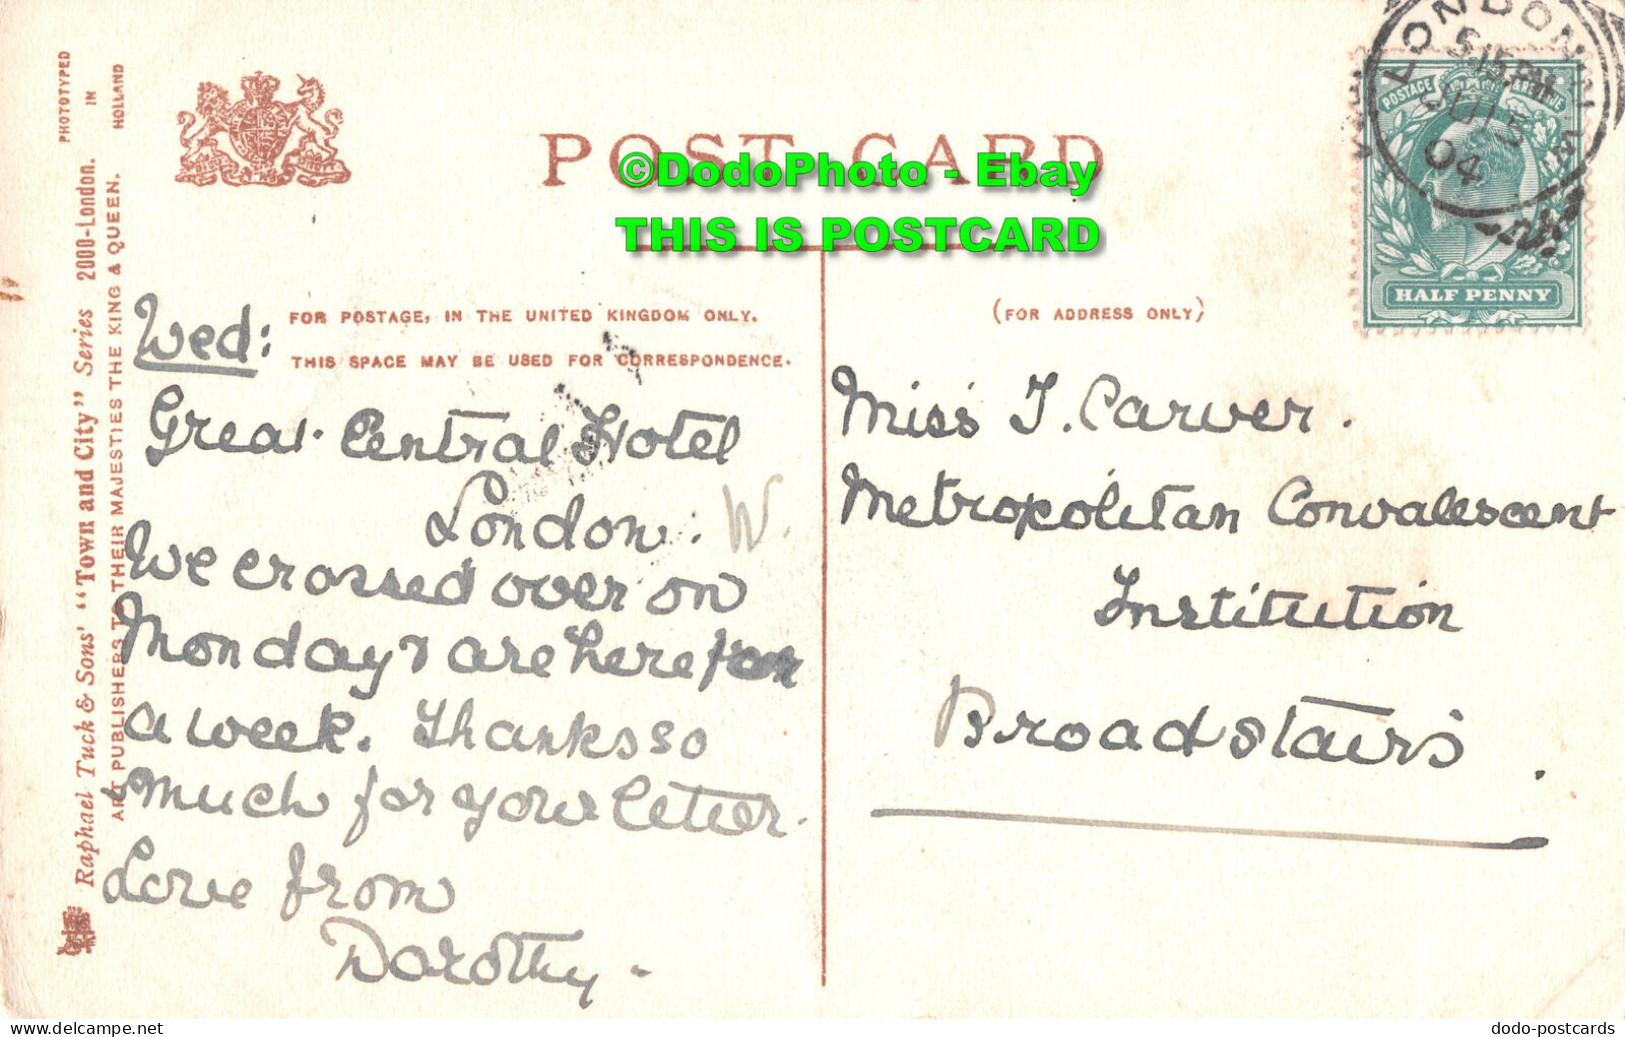 PHOTOTYPED
IN
HOLLAND
Raphael Tuck & Sons' "Town and City" Series 2000-London.
ART PUBLISHERS TO THEIR MAJESTIES THE KING & QUEEN.
POST CARD
©DodoPhoto - Ebay
THIS IS POSTCARD
FOR POSTAGE, IN THE UNITED KINGDOM ONLY.
THIS SPACE MAY BE USED FOR CORRESPONDENCE.
Wed:
Great Central Hotel
London. W.
We crossed over on
Monday & are here for
a week. Thanks so
much for your letter.
Love from
Dorothy.
(FOR ADDRESS ONLY)
Miss J. Carver.
Metropolitan Convalescent
Institution
Broadstairs.
LONDON
04
POSTAGE
HALF PENNY
dodo-postcards
www.delcampe.net